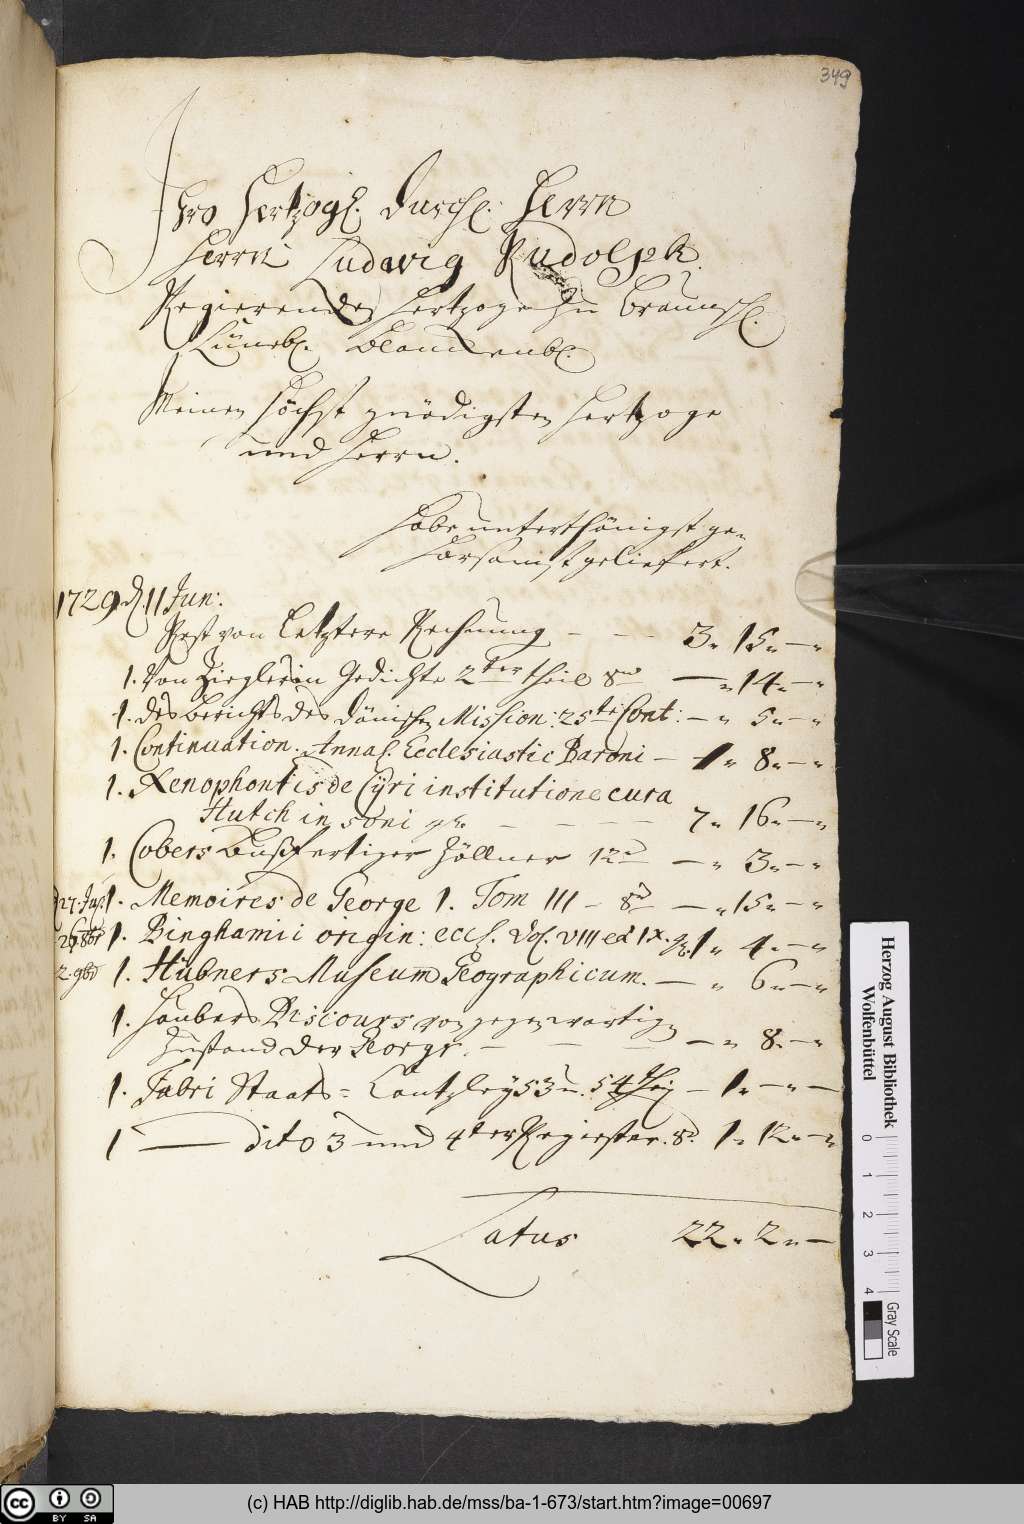 349
Ihro Hertzogl. Durchl. Herrn
Herrn Ludwig Rudolph
Regierenden Hertzoge zu Braunschl.
Lüneb. Blanckenb.
Meinen Höchst gnädigsten Hertzoge
und Herrn.
Habe unterthänigst ge-
horsamst geliefert.
1729 d. 11 Jun:
Rest von Letztere Rechnung - - - 3 " 15 " - "
1. Von Zieglerin Gedichte 2ter theil 8vo - " 14 " - "
1. des Berichts des Dänischen Mission: 25ste Cont: - " 5 " - "
1. Continuation. Annal. Ecclesiastic Baroni - 1 " 8 " - "
1. Xenophontis de Cyri institutione cura
Hutchinsoni - - - - 7 " 16 " - "
1. Cobers Bußfertiger Zöllner 12 - " 3 " - "
1. Memoires de George 1. Tom III - 8 - " 15 " - "
1. Binghamii origin: eccl. Vol. VIII et IX. 1 " 4 " - "
1. Hübners Museum Geographicum. - " 6 " - "
1. Haubers Discours von gegenwartigen
Zustand der Geogr. - - - " 8 " - "
1. Fabri Staats = Cantzley 53 u. 54 - 1 " - " -
1 - dito 3 und 4ter Register. 8. 1 " 12 " - "
Latus 22 " 2 " -
Herzog August Bibliothek
Wolfenbüttel
0 1 2 3 4
Gray Scale
cc BY SA
(c) HAB http://diglib.hab.de/mss/ba-1-673/start.htm?image=00697